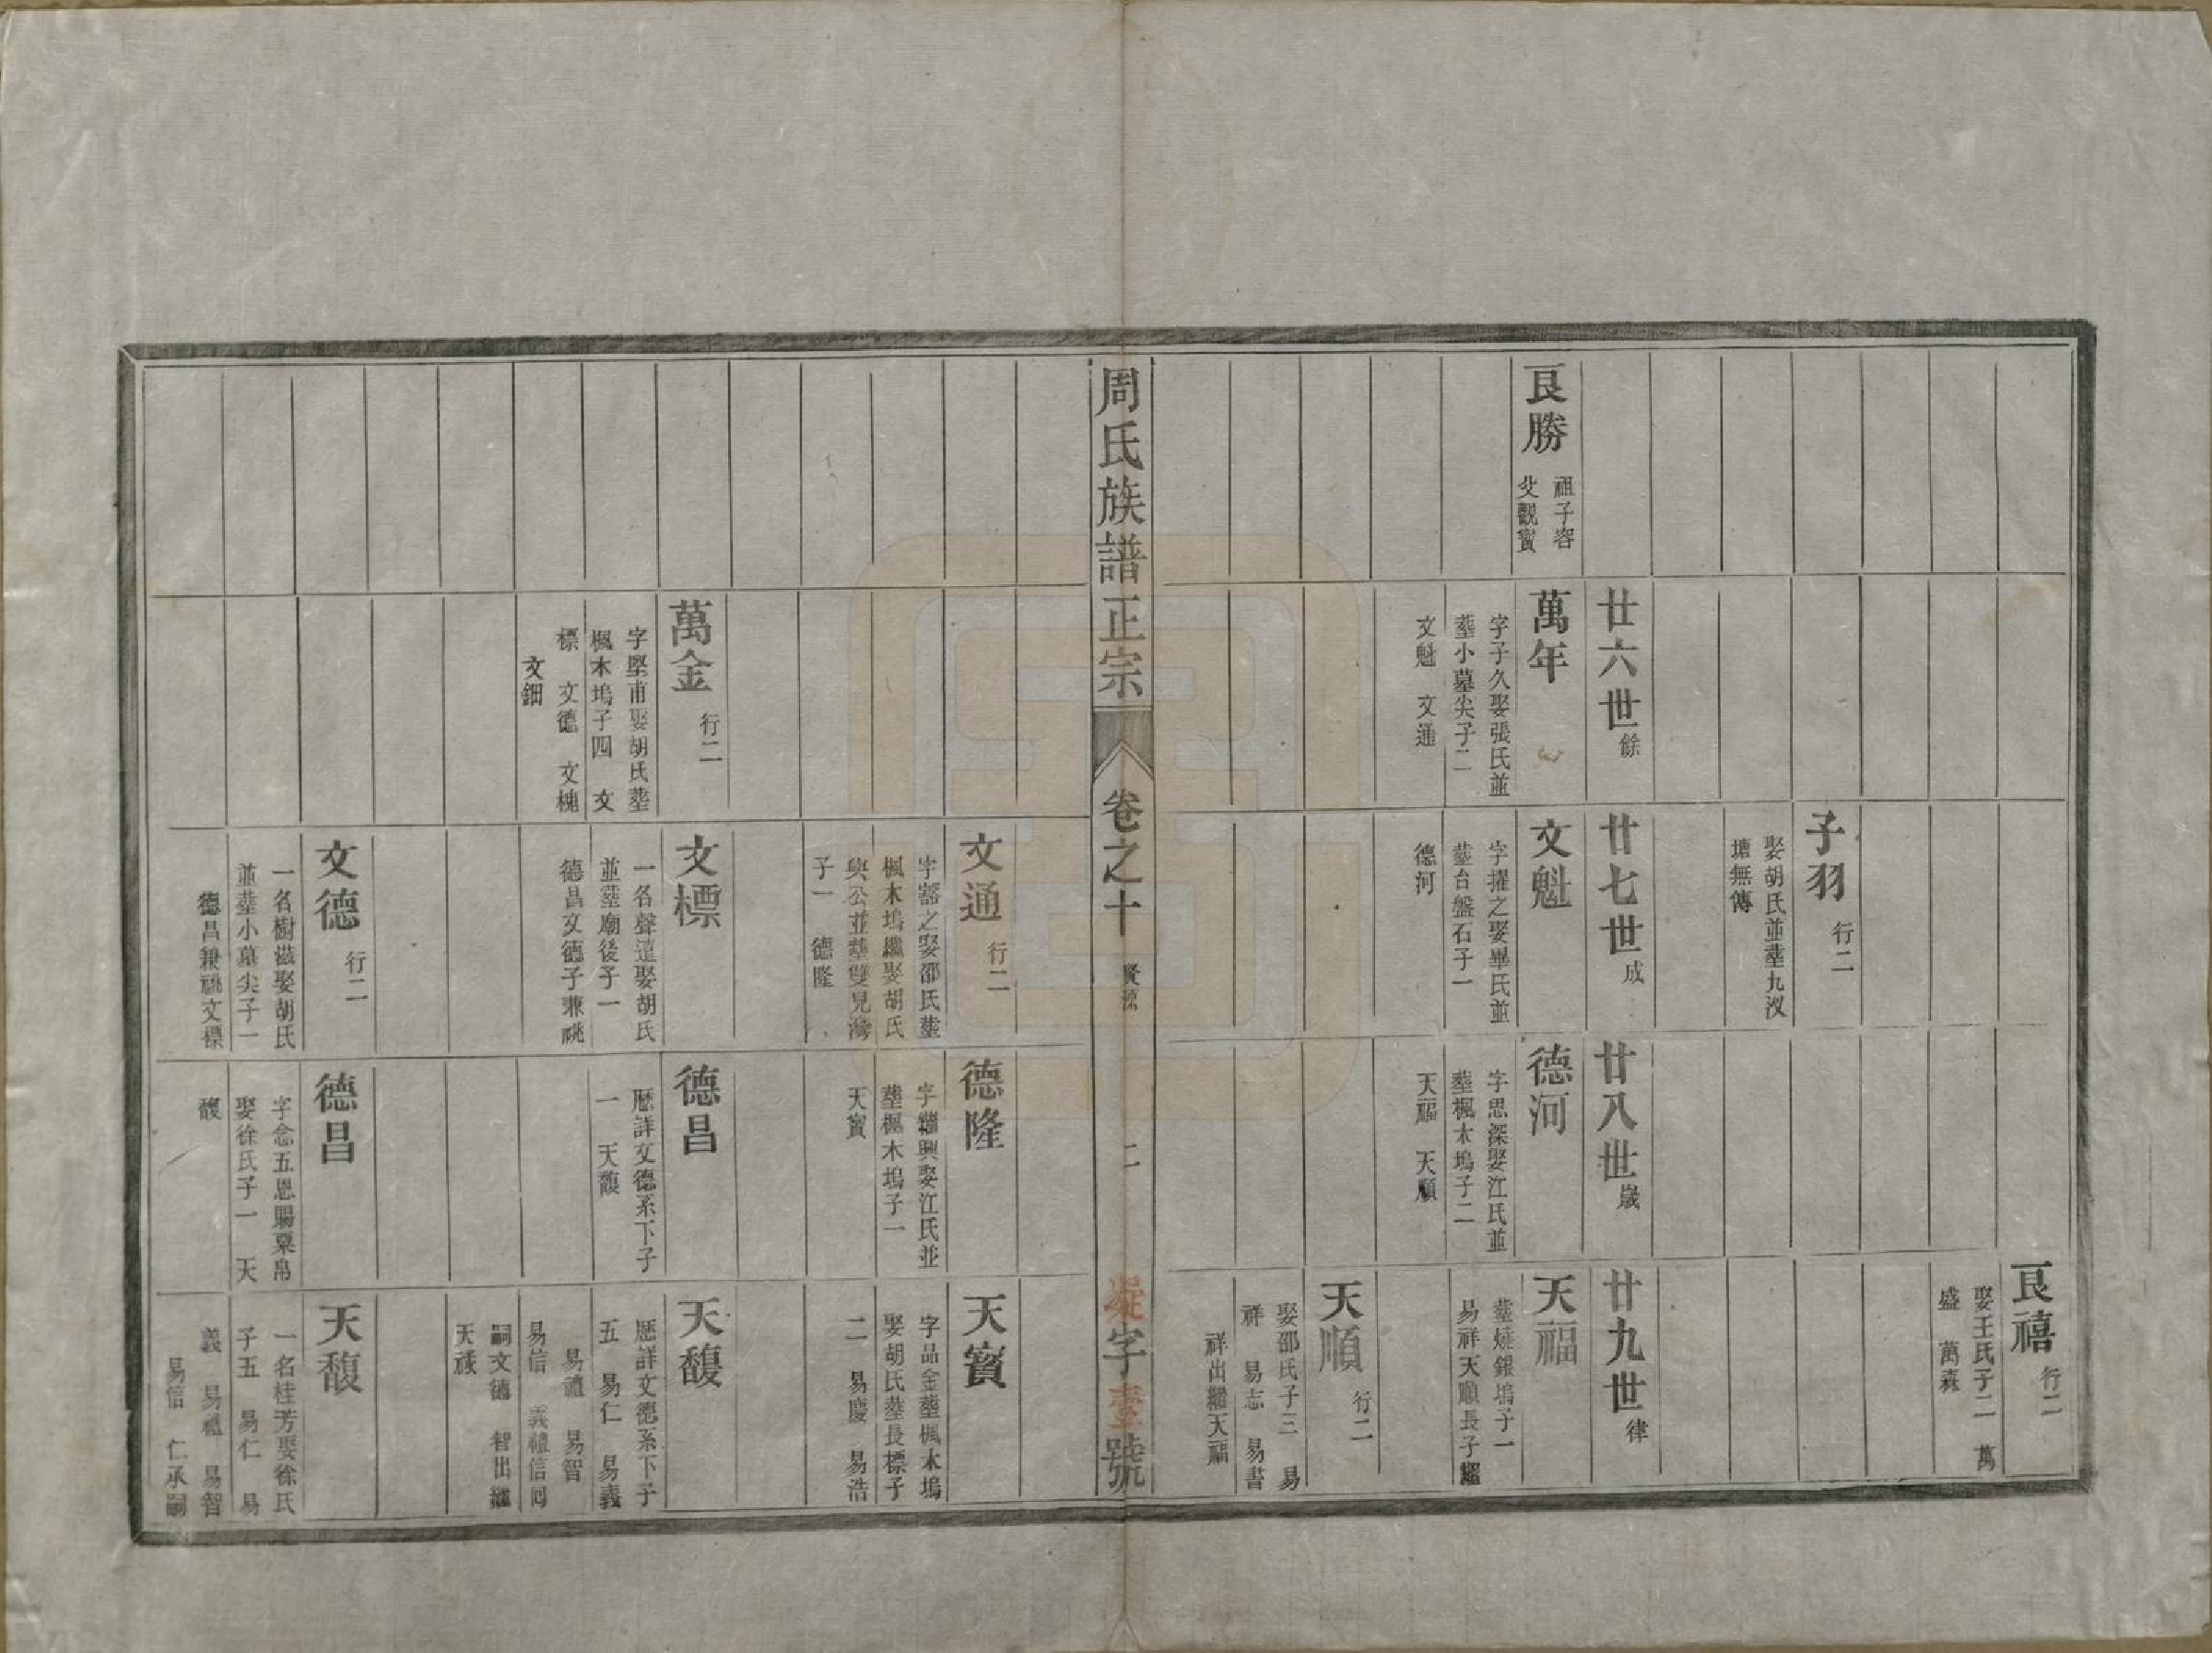 子羽 行二
娶胡氏並塟九汊
塘無傳
艮禧 行二
娶王氏子二 萬
盛 萬森
廿六世 餘
廿七世 成
廿八世 歲
廿九世 律
艮勝
祖子容
父觀賓
萬年
字子久娶張氏並
塟小墓尖子二
文魁 文通
文魁
字擢之娶畢氏並
塟台盤石子一
德河
德河
字思深娶江氏並
塟楓木塢子二
天福 天順
天福
塟燒銀塢子一
易祥天順長子繼
天順 行二
娶邵氏子三 易
祥 易志 易書
祥出繼天福
周氏族譜正宗
卷之十
賢源
二
凝字壹號
文通 行二
字豁之娶邵氏塟
楓木塢繼娶胡氏
與公並塟雙見灣
子一 德隆
德隆
字繼興娶江氏並
塟楓木塢子一
天寶
天寶
字品金塟楓木塢
娶胡氏塟長標子
二 易慶 易浩
萬金 行二
字堅甫娶胡氏塟
楓木塢子四 文
標 文德 文槐
文鈿
文標
一名聲遠娶胡氏
並塟廟後子一
德昌文德子兼祧
德昌
歷詳文德系下子
一 天馥
天馥
歷詳文德系下子
五 易仁 易義
易禮 易智
易信 義禮信同
嗣文德 智出繼
天禄
文德 行二
一名樹滋娶胡氏
並塟小墓尖子一
德昌兼祧文標
德昌
字念五恩賜粟帛
娶徐氏子一 天
馥
天馥
一名桂芳娶徐氏
子五 易仁 易
義 易禮 易智
易信 仁承嗣